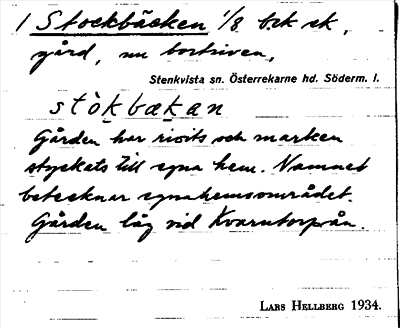 1 Stockbäcken 1/8 bok ek,
gård, nu bortriven,
Stenkvista sn. Österrekarne hd. Söderm. l.
stòkbækan
Gården har rivits och marken
styckats till egna hem. Namnet
betecknar egnahemsområdet.
Gården låg vid Kvarntorpsån.
LARS HELLBERG 1934.